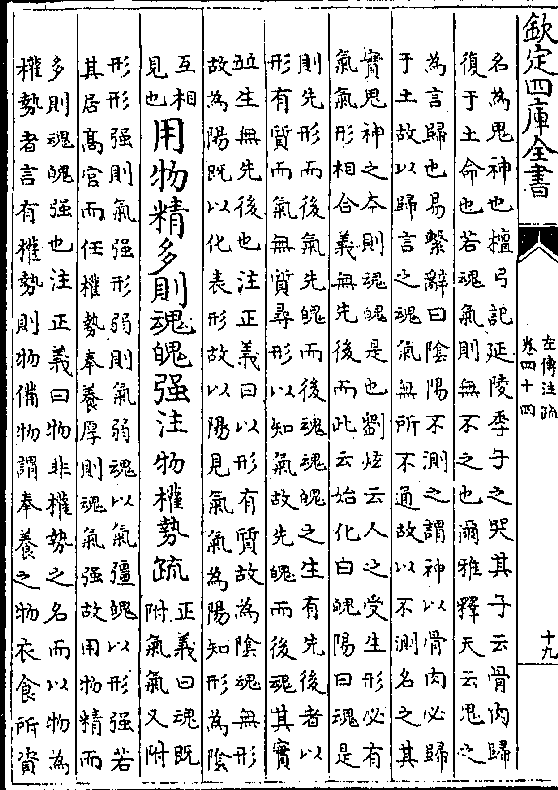 欽定四庫全書
左傳注疏
卷四十四
十九
名為鬼神也檀弓記延陵季子之哭其子云骨肉歸
復于土命也若魂氣則無不之也爾雅釋天云鬼之
為言歸也易繫辭曰陰陽不測之謂神以骨肉必歸
于土故以歸言之魂氣無所不通故以不測名之其
實鬼神之本則魂魄是也劉炫云人之受生形必有
氣氣形相合義無先後而此云始化曰魄陽曰魂是
則先形而後氣先魄而後魂魂魄之生有先後者以
形有質而氣無質尋形以知氣故先魄而後魂其實
並生無先後也注正義曰以形有質故為陰魂無形
故為陽既以化表形故以陽見氣氣為陽知形為陰
互相
見也
用物精多則魂魄强注物權勢疏
正義曰魂既
附氣氣又附
形形强則氣强形弱則氣弱魂以氣彊魄以形强若
其居高官而任權勢奉養厚則魂氣强故用物精而
多則魂魄强也注正義曰物非權勢之名而以物為
權勢者言有權勢則物備物謂奉養之物衣食所資